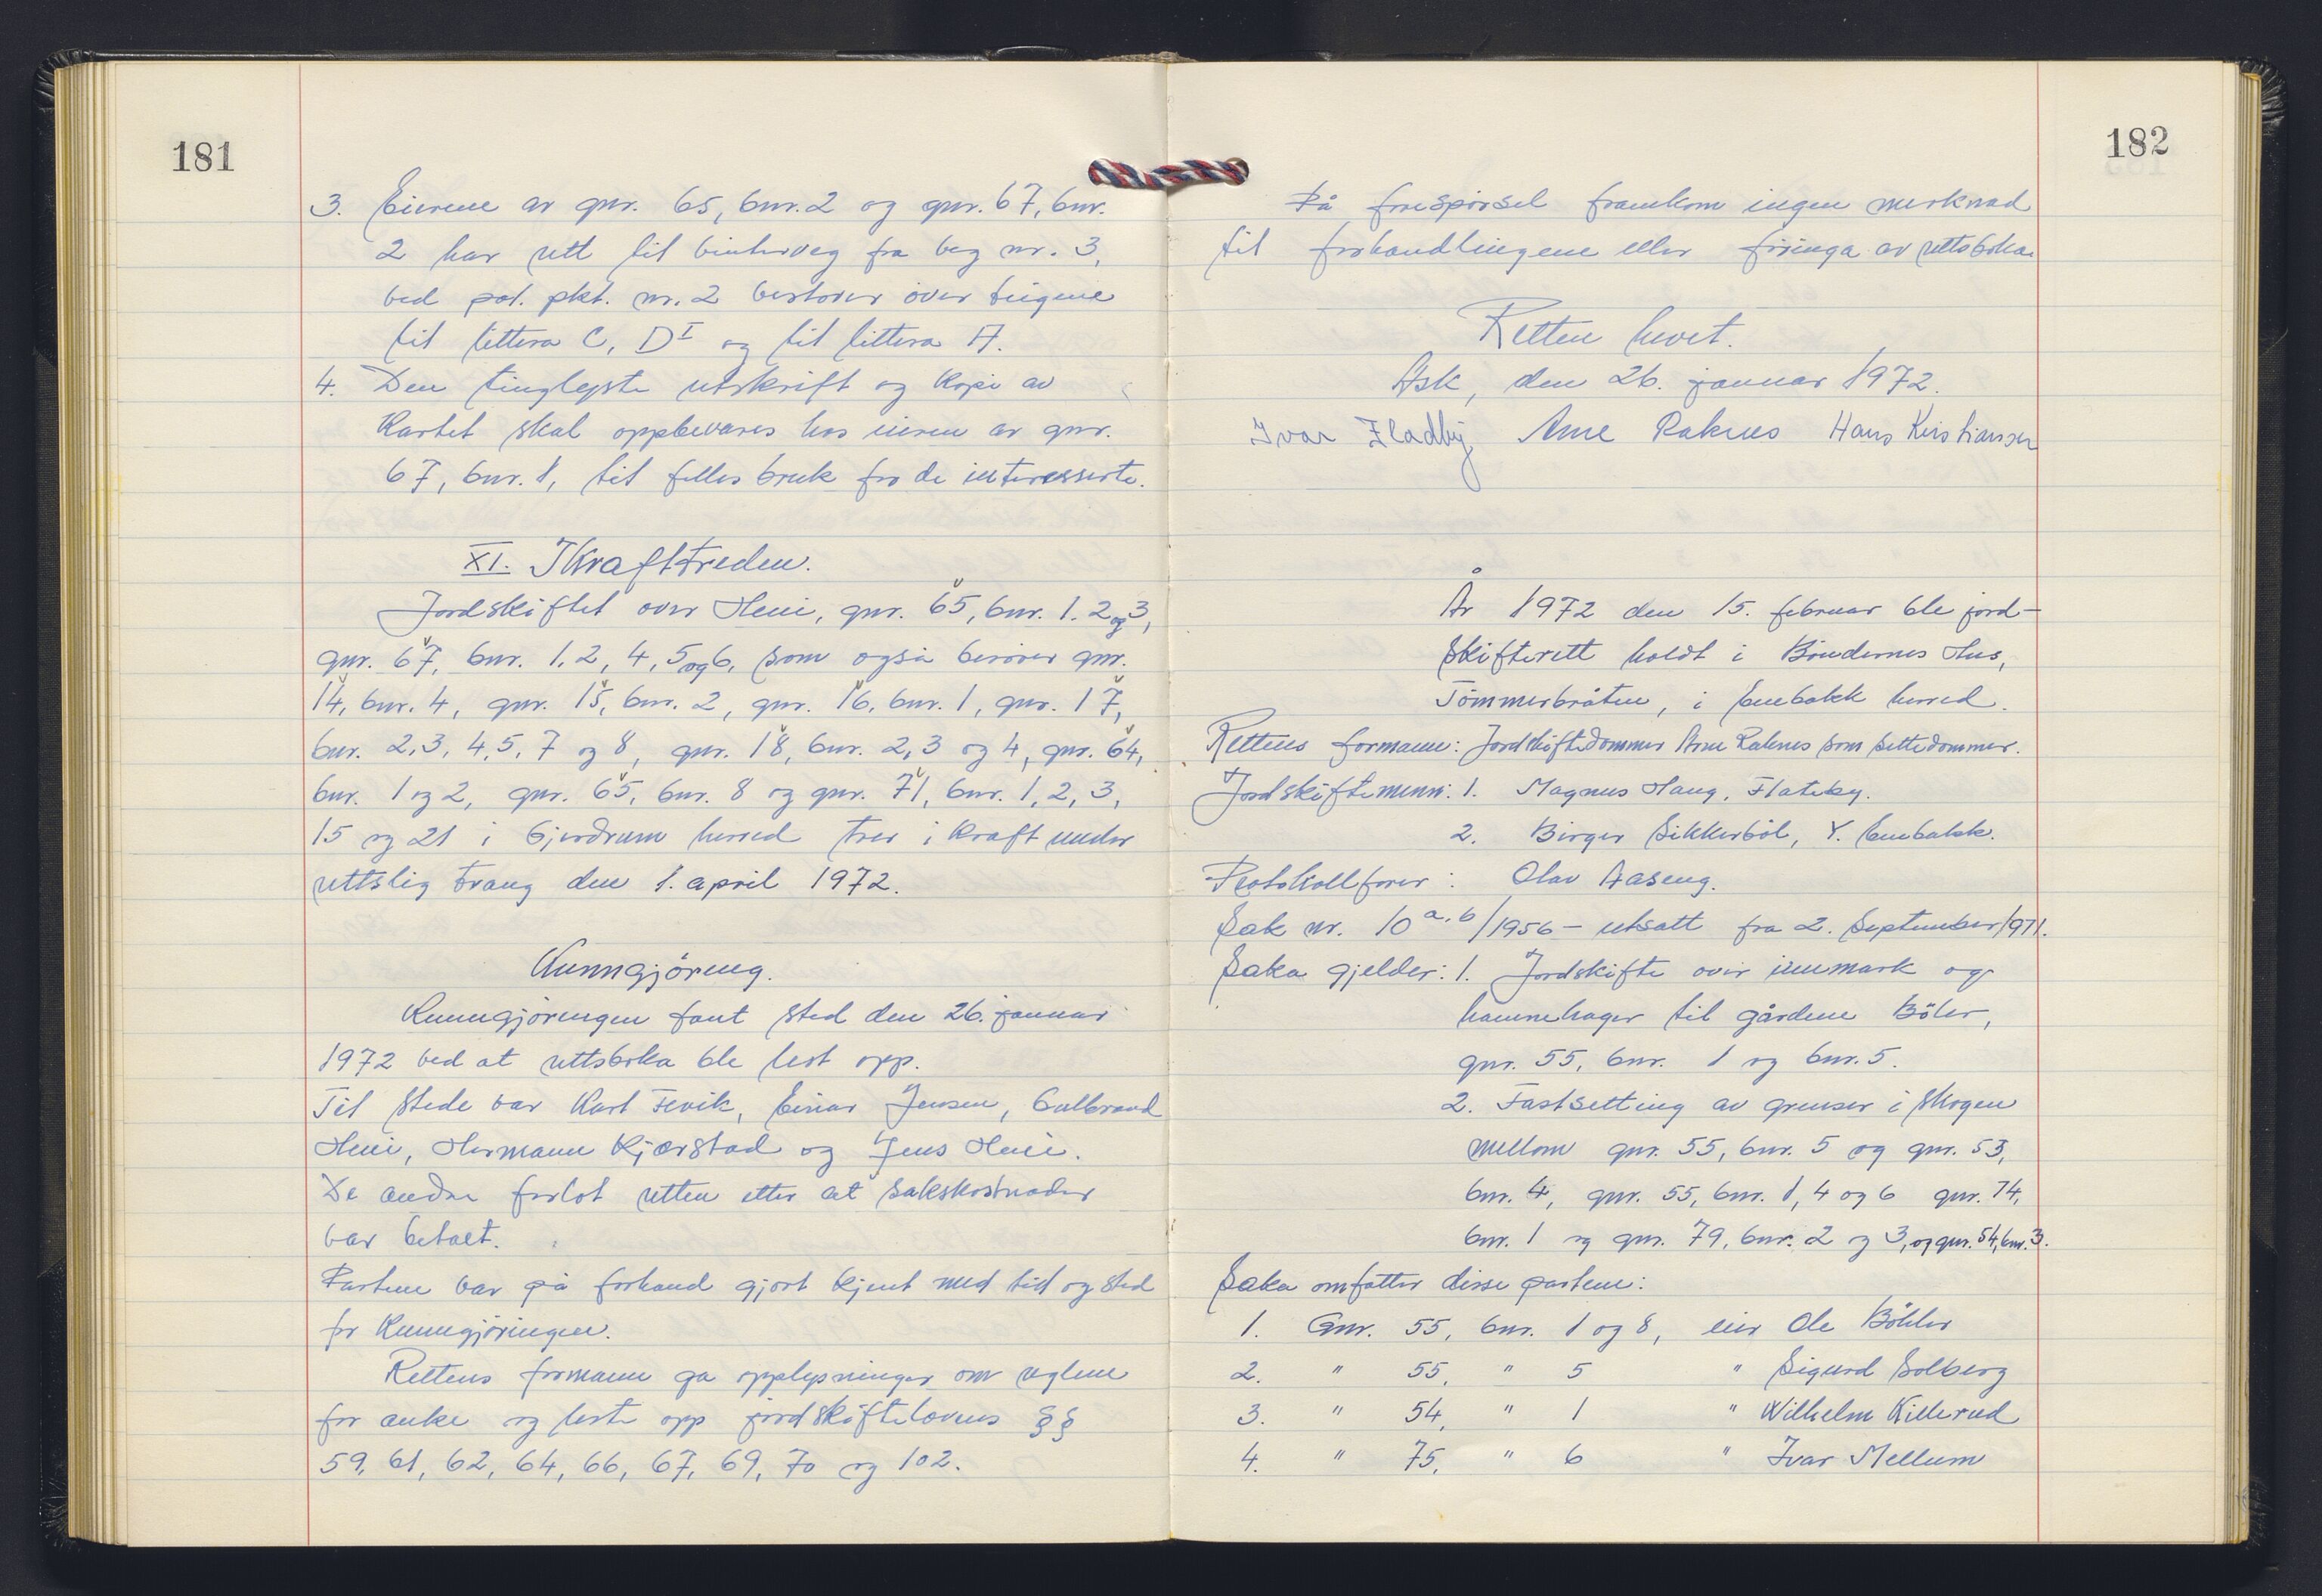 181
3. Eierene av gnr. 65, bnr. 2 og gnr. 67, bnr.
2 har rett til vinterveg fra veg nr. 3,
ved pol. pkt. nr. 2 vestover over teigene
til littera C, D I og til littera A.
4. Den tinglyste utskrift og kopi av
kartet skal oppbevares hos eieren av gnr.
67, bnr. 1, til felles bruk for de interesserte.
XI. Ikrafttreden.
Jordskiftet over Heni, gnr. 65, bnr. 1. 2 og 3,
gnr. 67, bnr. 1, 2, 4, 5 og 6, som også berører gnr.
14, bnr. 4, gnr. 15, bnr. 2, gnr. 16, bnr. 1, gnr. 17,
bnr. 2, 3, 4, 5, 7 og 8, gnr. 18, bnr. 2, 3 og 4, gnr. 64,
bnr. 1 og 2, gnr. 65, bnr. 8 og gnr. 71, bnr. 1, 2, 3,
15 og 21 i Gjerdrum herred trer i kraft under
rettslig tvang den 1. april 1972.
Kunngjöring.
Kunngjöringen fant sted den 26. januar
1972 ved at rettsboka ble lest opp.
Til stede var Karl Fevik, Einar Jensen, Gulbrand
Heni, Hermann Kjærstad og Jens Heni.
De andre forlot retten etter at sakskostnader
var betalt.
Partene var på forhand gjort kjent med tid og sted
for kunngjöringen.
Rettens formann ga opplysninger om reglene
for anke og leste opp jordskiftelovens §§
59, 61, 62, 64, 66, 67, 69, 70 og 102.
182
På forespörsel framkom ingen merknad
til forhandlingene eller föringa av rettsboka.
Retten hevet.
Ask, den 26. januar 1972.
Ivar Fladby Arne Raknes Hans Kristiansen
År 1972 den 15. februar ble jord-
skifterett holdt i Böndernes Hus,
Tömmerbråten, i Enebakk herred.
Rettens formann: Jordskiftedommer Arne Raknes som settedommer.
Jordskiftemenn: 1. Magnus Haug, Flateby.
2. Birger Sikkerböl, Y. Enebakk.
Protokollförer: Olav Aaseng.
Sak nr. 10 a, b/1956 – utsatt fra 2. September 1971.
Saka gjelder: 1. Jordskifte over innmark og
hamnehager til gårdene Böler,
gnr. 55, bnr. 1 og bnr. 5.
2. Fastsetting av grenser i skogen
mellom gnr. 55, bnr. 5 og gnr. 53,
bnr. 4, gnr. 55, bnr. 1, 4 og 6 gnr. 74,
bnr. 1 og gnr. 79, bnr. 2 og 3, og gnr. 54, bnr. 3.
Saka omfatter disse partene:
1. Gnr. 55, bnr. 1 og 8, eier Ole Böhler
2. " 55, " 5 " Sigurd Solberg
3. " 54, " 1 " Wilhelm Killerud
4. " 75, " 6 " Ivar Mellum